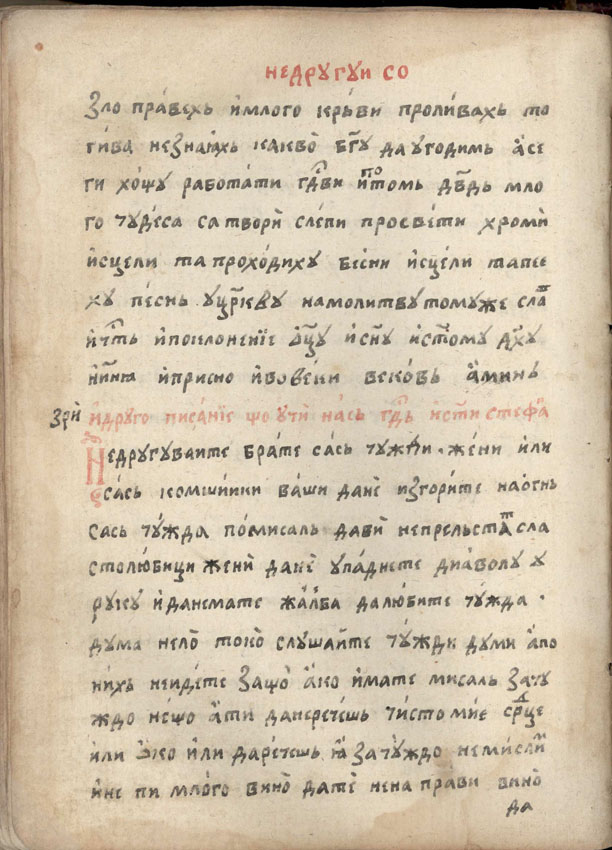 недругуи со
Зло правехь и много крьви проливахь то
гива незнаяхь какво бг҃у да угодимь а се
ги хощу работати гд҃ви и по томь дв҃дь мло
го чудеса сатвори слепи просвети хроми
исцели та проходиху бесни исцели та пее
ху песнь у цр҃кву на молитву томуже сла
и чть и поклонение оц҃у и сн҃у и ст҃ому дх҃у
ниня и присно и вовеки вековь аминь
Зри и друго писание що учи нась гд҃ь и ст҃и стефа
Недругуваите брате сась чужди жени или
сась комшиики ваши да не изгорите на огнь
сась чужда помисаль да ви не прельстѧт сла
столюбици жени да не упаднете диаволу у
руку и да немате жалба да любите чужда
дума нело токо слушайте чужди думи а по
нихь неидете Защо ако имате мисаль за чу
ждо нещо а ти да неречешь чисто ми е срдце
или око или да речешь я за чуждо немисли
и не пи много вино да те не направи вино
да